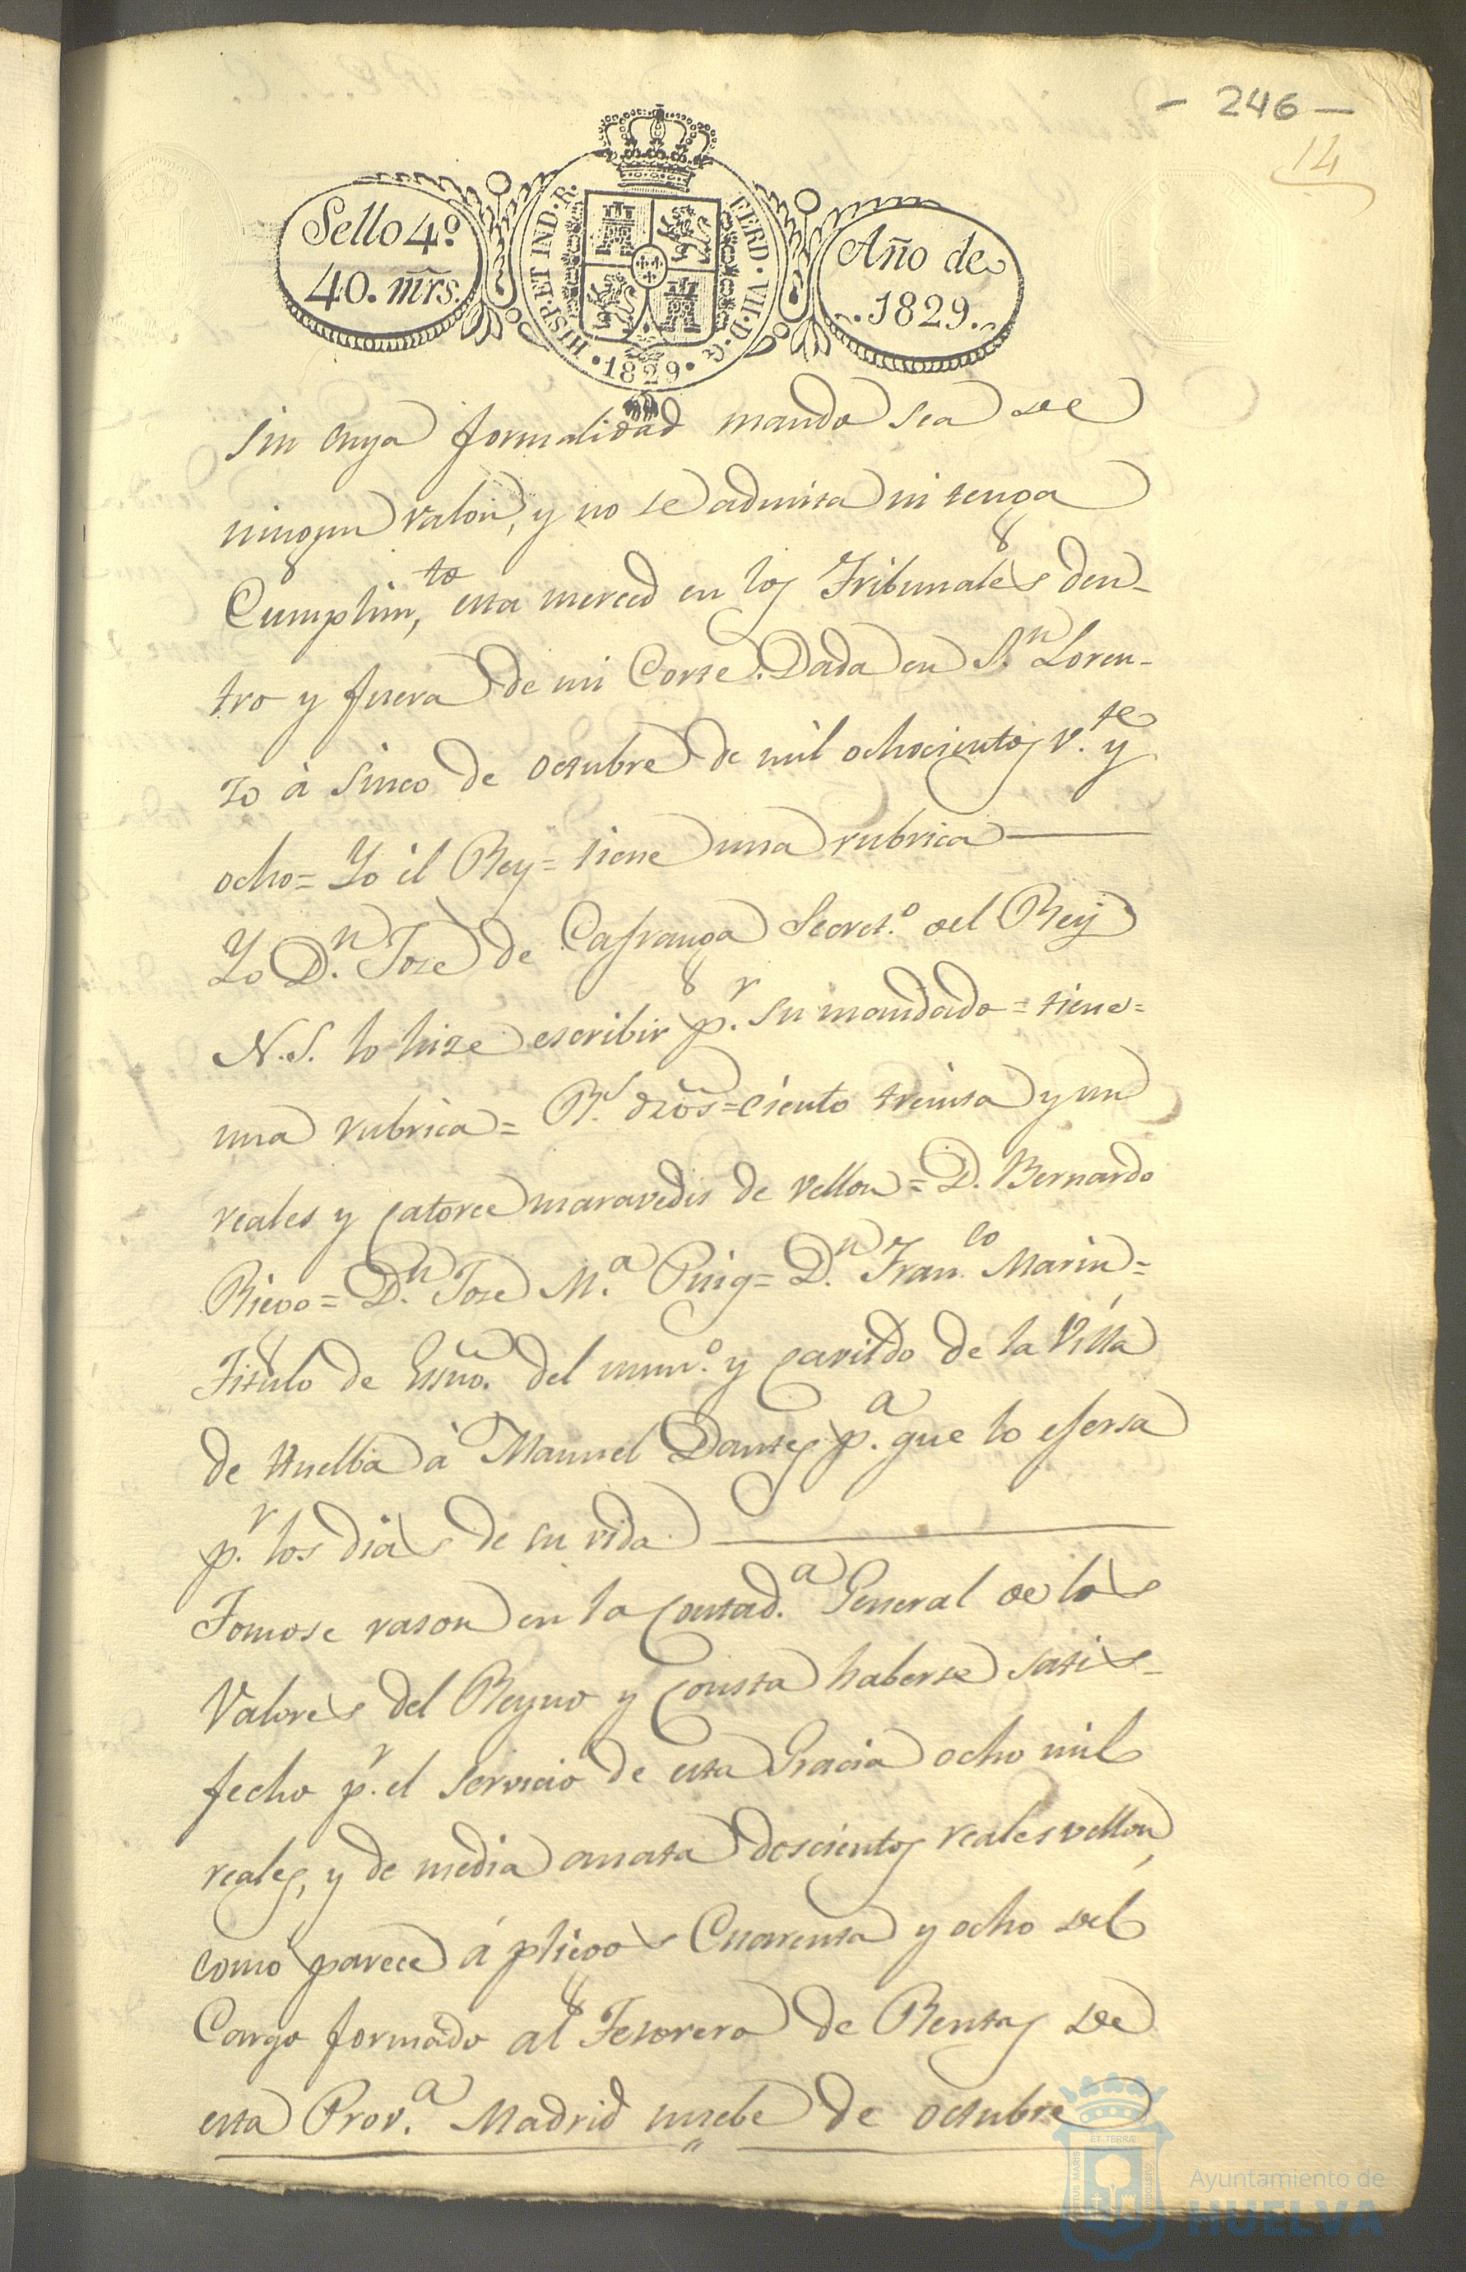 - 246 -
14
Sello 4º
40. mrs.
HISP. ET IND. R. FERD. VII. D. G.
· 1829 ·
Año de
1829.
sin cuya formalidad mando sea de
ningun valor, y no se admita ni tenga
Cumplim.to esta merced en los Tribunales den-
tro y fuera de mi Corte. Dada en S.n Loren-
zo à sinco de octubre de mil ochocientos v.te y
ocho= Yo èl Rey= tiene una rubrica
Yo D.n Jose de Cafranga Secret.o del Rey
N.S. lo hize escribir p.r su mandado= tiene=
una rubrica= R.s dros= ciento treinta y un
reales y catorce maravedis de vellon= D. Bernardo
Riego= D.n Jose M.a Puig= D.n Fran.co Marin=
Titulo de Essno. del num.o y cavildo de la Villa
de Huelba à Manuel Dantes p.a que lo ejersa
p.r los dias de su vida
Tomose rason en la Contad.a General de los
Valores del Reyno y consta haberse satis-
fecho p.r el servicio de esta Gracia ocho mil
reales, y de media annata doscientos reales vellon,
como parece á pliegos Cuarenta y ocho del
Cargo formado al Tesorero de Rentas de
esta Prov.a Madrid nuebe de octubre
ET TERRÆ
PORTUS MARIS
CUSTODIA
Ayuntamiento de
HUELVA